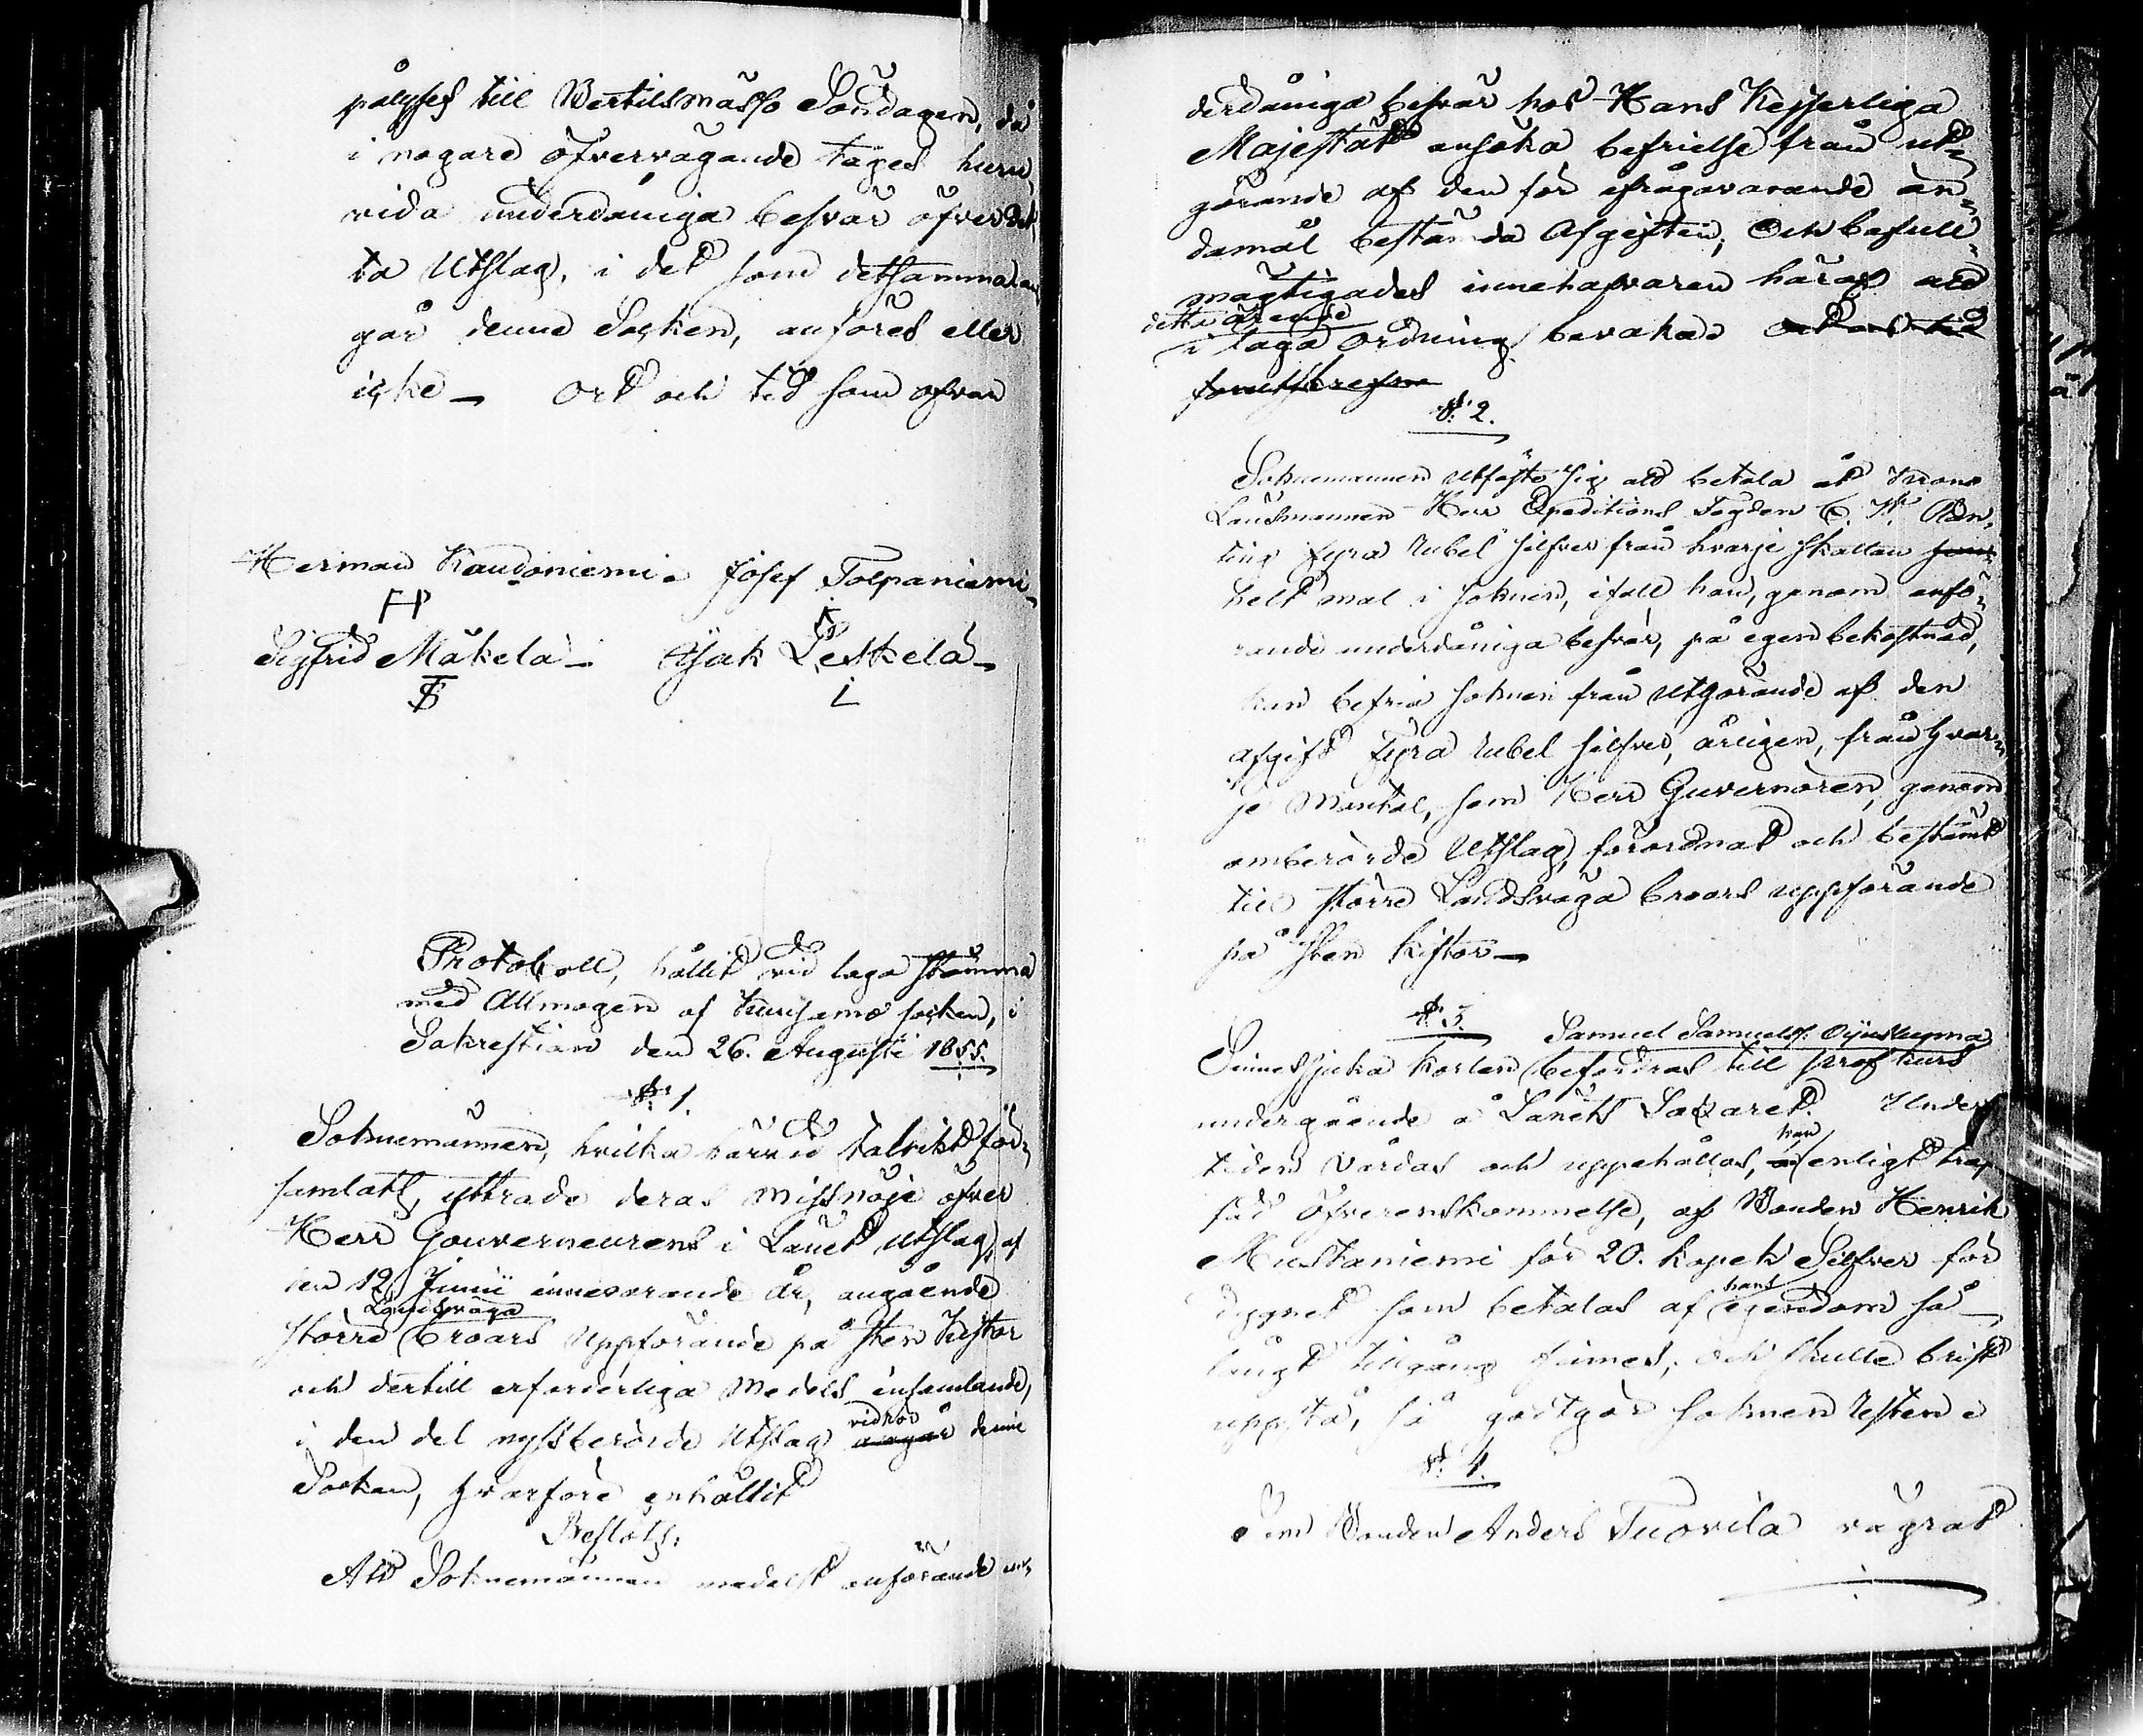 pålyses till Bertilsmässo Söndagen, då
i nogare öfvervägande tages huru
vida underdåniga besvär öfver det
ta Utslag, i det som detsamma an
går denne Socken, anföres eller
icke — Ort och tid som ofvan
Herman Kaudoniemi Josef Tolpaniemi
Sigfrid Mäkelä — Isak Leskelä —
Protokoll, hållit vid laga stämma
med Allmogen af Kuusamo socken, i
Sakrestian den 26. Augusti 1855.
§. 1.
Soknemännen, hvilka härvid talrikt för,
samlats, yttrade deras missnöje öfver
Herr Gouverneurens i Länet Utslag, af
den 12 Junii innevarande år, angående
Landsväga
större broars uppförande på sten kistor
och dertill erforderliga Medels insamlande,
vidrör
i den del nyssberörde Utslag angår denne
Socken, hvarföre enhälligt
Beslöts:
Att Soknemännen medelst anförande un,
derdåniga besvär hos Hans Kejserliga
Majestät ansöka befrielse från ut,
görande af den för ifrågavarande än,
damål bestämda Afgiften, Och befull,
mägtigades innehafvaren häraf att
detta ärende
i laga ordning bevaka
§. 2.
Soknemännen utfäste sig att betala åt Krono
Länsmannen Herr Expeditions Fogden C. W. Plan,
ting fyra rubel silfver från hvarje skattan
helt mal i soknen, ifall han, genom anfö,
rande underdåniga besvär, på egen bekostnad,
kan befria soknen från utgörande af den
afgift fyra rubel silfver, årligen, från hvar,
je Mantal, som Herr Guvernören, genom
omberörde Utslag, förordnat och bestämt
till större Landsväga broars uppförande
på sten kistor —
§. 3. Samuel Samuels.
Sinnessjuka karlen befordras till prof kurs
undergående å Länets Lazaret. Under
han
tiden vårdas och uppehålles, enligt träf
fad öfverenskommelse, af Bonden Henrik
Mustaniemi för 20. kopek Silfver för
hans
dygnet som betalas af egendom så
långt tillgång finnes; och skulle brist
uppstå, så godtgör soknen resten
§. 4.
Som Bonden Anders Tuovila vägrat